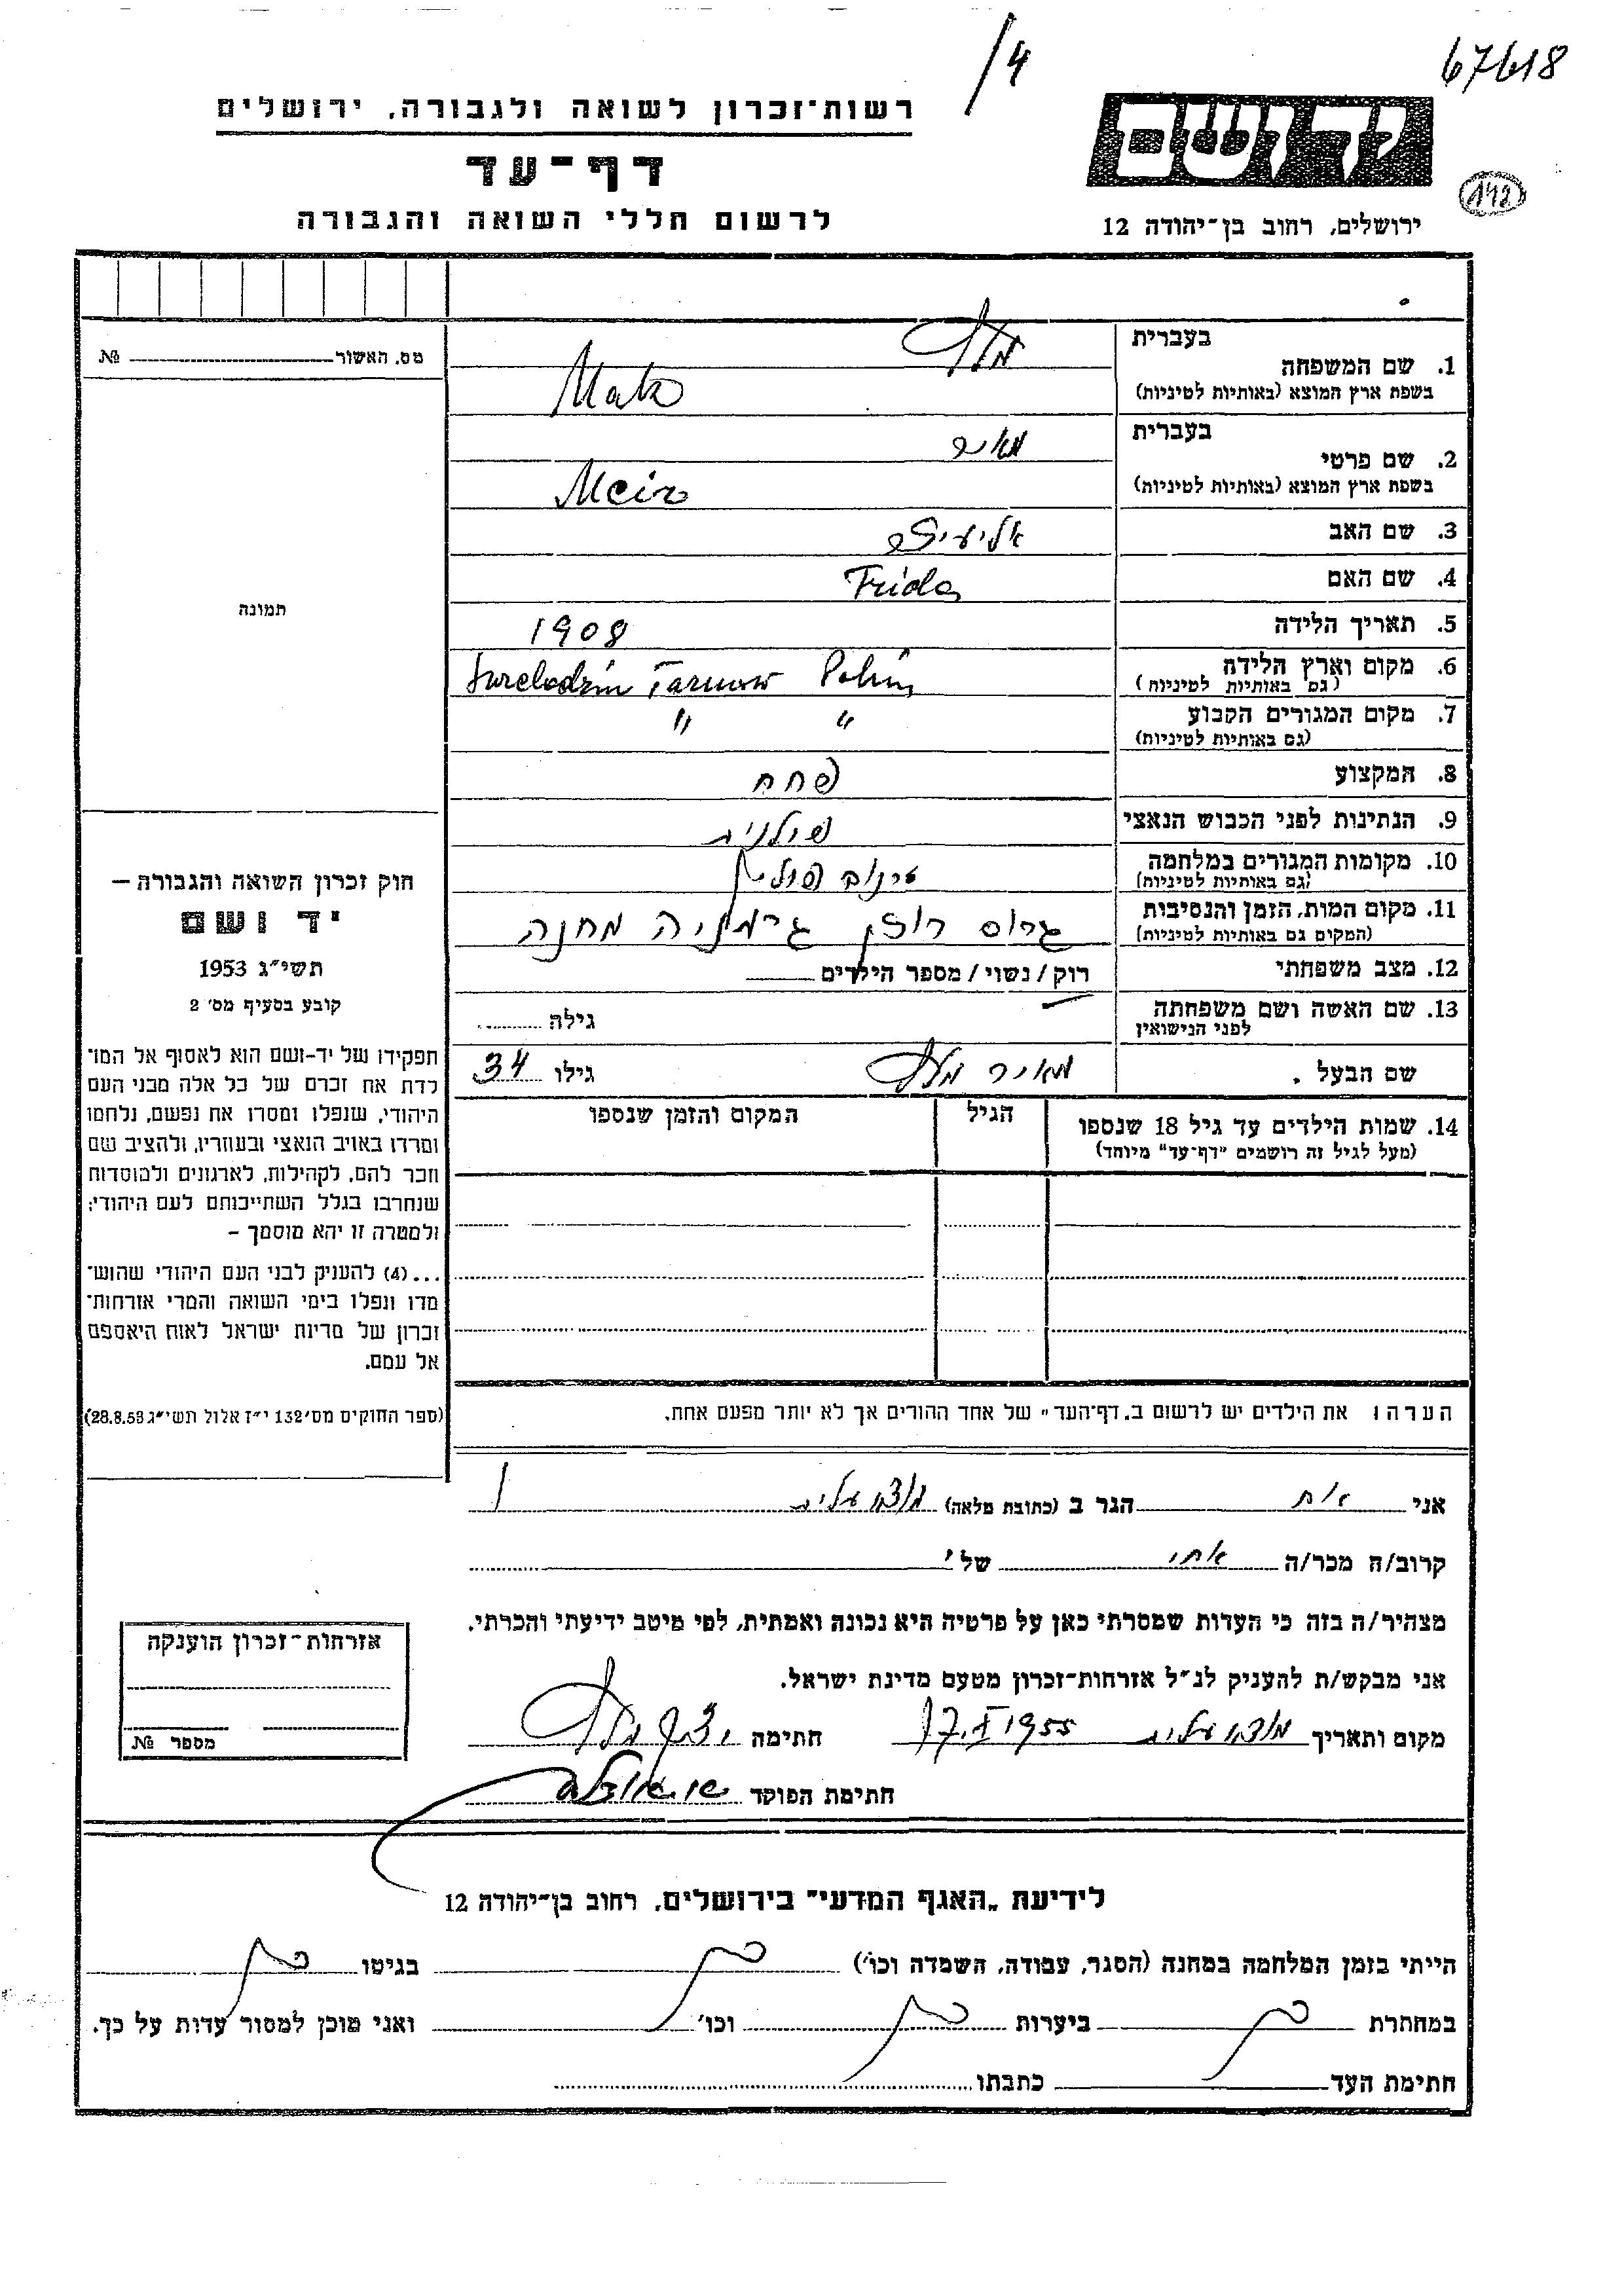 /4
67618
רשות־זכרון לשואה ולגבורה, ירושלים
יד ושם
דף־עד
142
לרשום חללי השואה והגבורה
ירושלים, רחוב בן־יהודה 12
מס. האשור № 
בעברית
1. שם המשפחה
בשפת ארץ המוצא (באותיות לטיניות)
Matz
בעברית מאיר
2. שם פרטי
בשפת ארץ המוצא (באותיות לטיניות) Meir
3. שם האב אליעזר
4. שם האם Frida
5. תאריך הלידה 1908
6. מקום וארץ הלידה
(גם באותיות לטיניות) Tarnow
7. מקום המגורים הקבוע " "
(גם באותיות לטיניות)
8. המקצוע פחח
9. הנתינות לפני הכבוש הנאצי פולנית
10. מקומות המגורים במלחמה
(גם באותיות לטיניות)
11. מקום המות, הזמן והנסיבות
(המקום גם באותיות לטיניות) גרוס רוזן גרמניה מחנה
12. מצב משפחתי רוק/נשוי/מספר הילדים
13. שם האשה ושם משפחתה
לפני הנישואין גילה
שם הבעל מאיר גילו 34
14. שמות הילדים עד גיל 18 שנספו הגיל המקום והזמן שנספו
(מעל לגיל זה רושמים "דף־עד" מיוחד)
הערה: את הילדים יש לרשום ב„דף־העד" של אחד ההורים אך לא יותר מפעם אחת.
תמונה
חוק זכרון השואה והגבורה –
יד ושם
תשי״ג 1953
קובע בסעיף מס׳ 2
תפקידו של יד-ושם הוא לאסוף אל המו־
לדת את זכרם של כל אלה מבני העם
היהודי, שנפלו ומסרו את נפשם, נלחמו
ומרדו באויב הנאצי ובעוזריו, ולהציב שם
וזכר להם, לקהילות, לארגונים ולמוסדות
שנחרבו בגלל השתייכותם לעם היהודי;
ולמטרה זו יהא מוסמך –
...(4) להעניק לבני העם היהודי שהוש־
מדו ונפלו בימי השואה והמרי אזרחות־
זכרון של מדינת ישראל לאות היאספם
אל עמם.
(ספר החוקים מס׳132 י״ז אלול תשי״ג 28.8.53)
אני אח הגר ב (כתובת מלאה)
קרוב/ה מכר/ה אחי של
מצהיר/ה בזה כי העדות שמסרתי כאן על פרטיה היא נכונה ואמתית, לפי מיטב ידיעתי והכרתי.
אני מבקש/ת להעניק לנ״ל אזרחות־זכרון מטעם מדינת ישראל.
מקום ותאריך 1955 חתימה
חתימת הפוקד
אזרחות־זכרון הוענקה
מספר №
לידיעת „האגף המדעי" בירושלים, רחוב בן־יהודה 12
הייתי בזמן המלחמה במחנה (הסגר, עבודה, השמדה וכו׳) בגיטו
במחתרת ביערות וכו׳ ואני מוכן למסור עדות על כך.
חתימת העד כתבתו